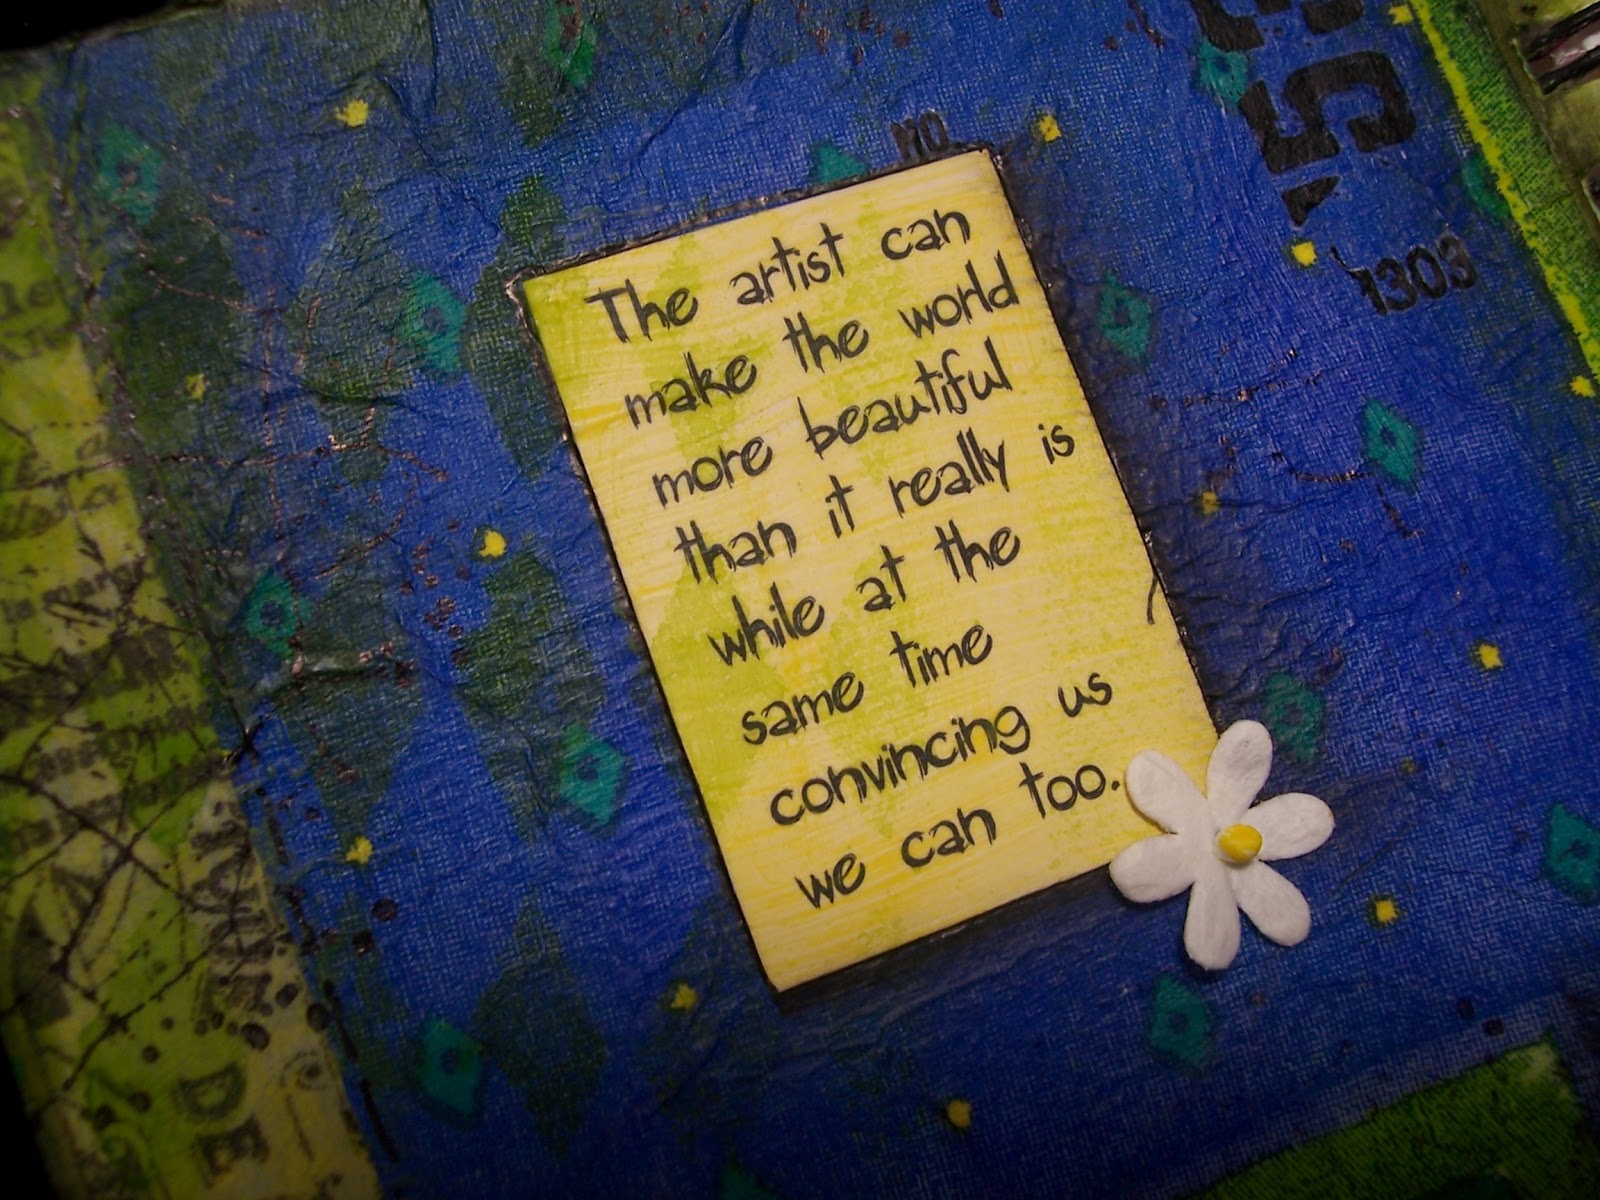 The artist can
make the world
more beautiful
than it really is
while at the
same time
convincing us
we can too.
1303